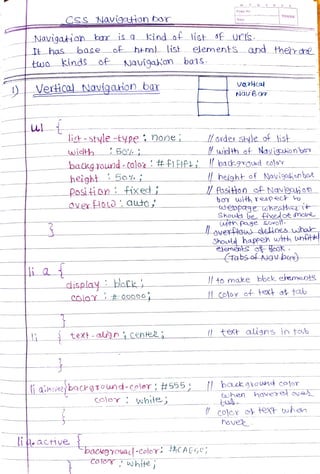 CSS Navigation bar
Navigation bar is a kind of list of urls.
It has base of html list elements and there are
two kinds of Navigation bars.
1) Vertical Navigation bar
Vertical
Nav Bar
ul {
list-style-type : none; // order style of list
width : 50%; // width of Navigation bar
background-color : #F1F1F1; // background color
height : 50%; // height of Navigation bar
Position : fixed; // Position of Navigation
bar with respect to
webpage whether it
should be fixed or move
with page scroll.
overflow : auto; // overflow defines what
should happen with unfitted
elements of
(Tabs of Nav bar)
}
li a {
display : block; // to make block elements
color : # 00000; // color of text at tab
}
li { text-align : center; // text aligns in tab
}
li a:hover { background-color : #555; // background color
when hovered over
tab.
color : white; // color of text when
hover.
}
li a.active {
background-color :
color : white;
}